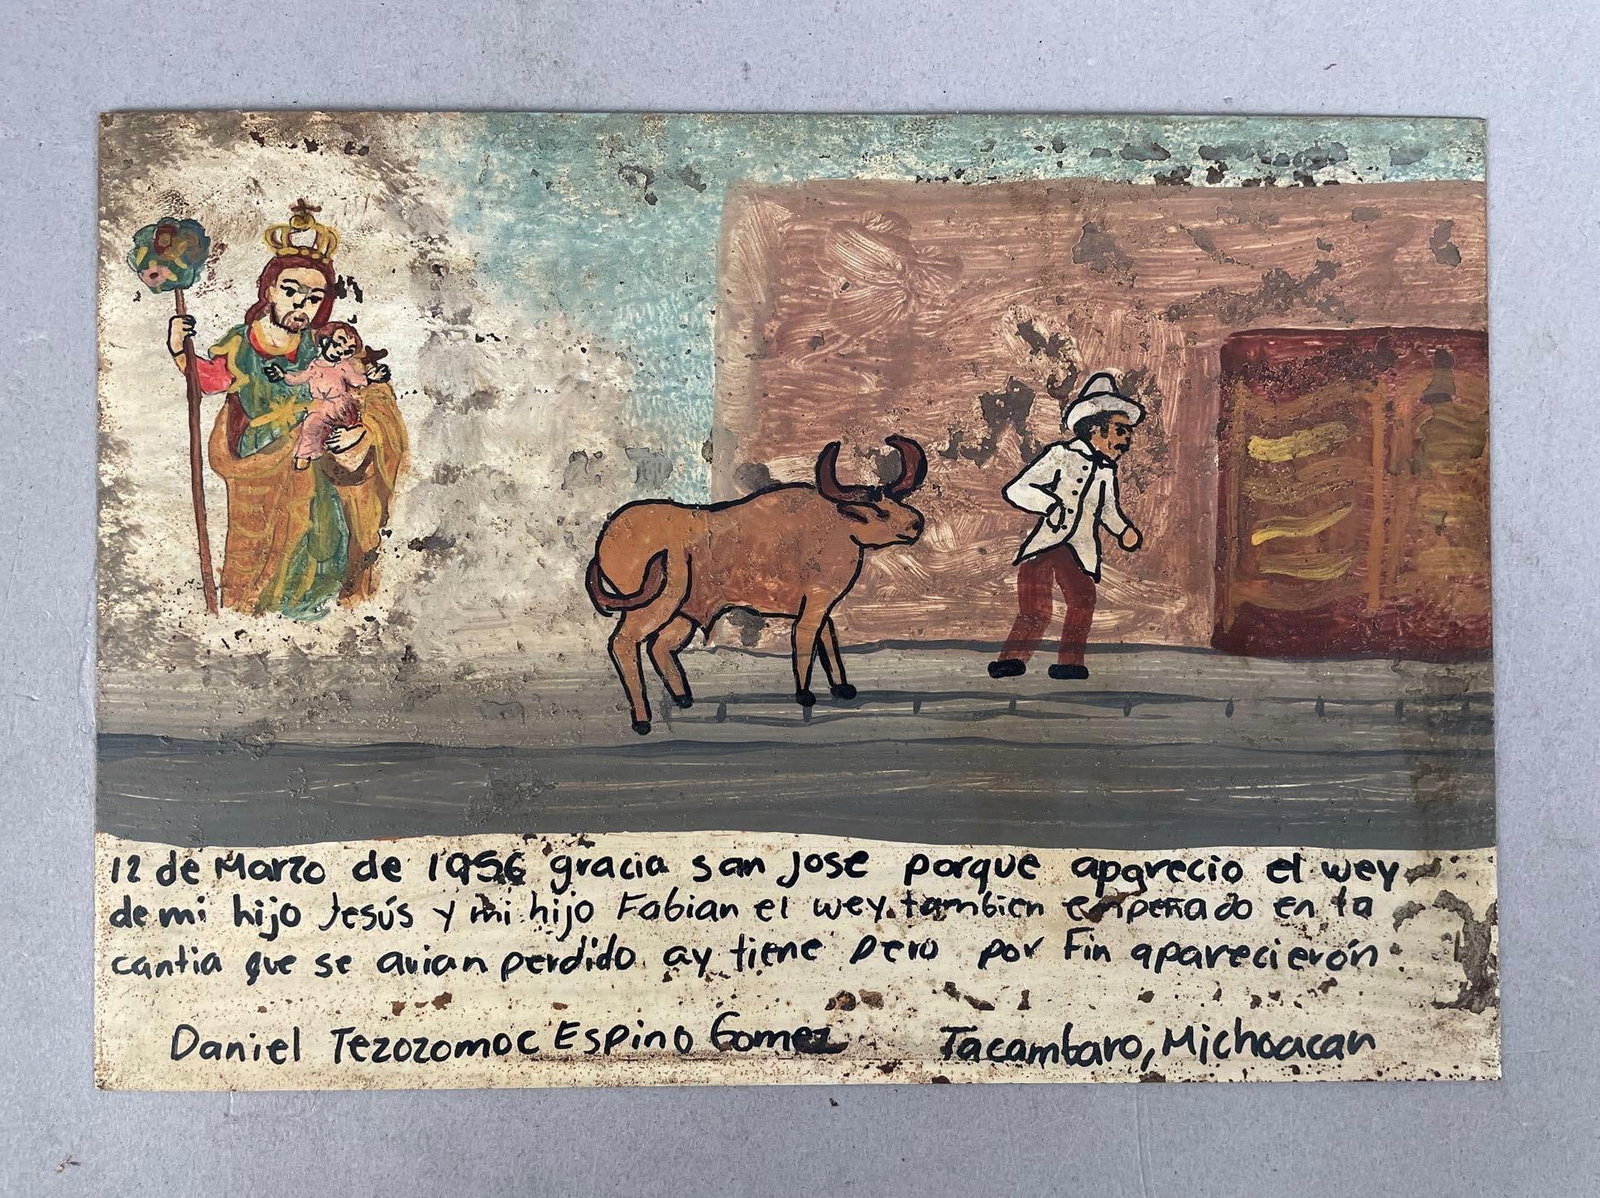 12 de Marzo de 1956 gracia san jose porque aparecio el wey
de mi hijo Jesús y mi hijo Fabian el wey tambien empeñado en la
cantia que se avian perdido ay tiene pero por Fin aparecierón
Daniel Tezozomoc Espino Gomez Tacambaro, Michoacan